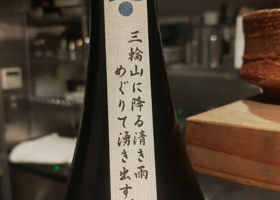 三輪山に降る清き雨
めぐりて湧き出す